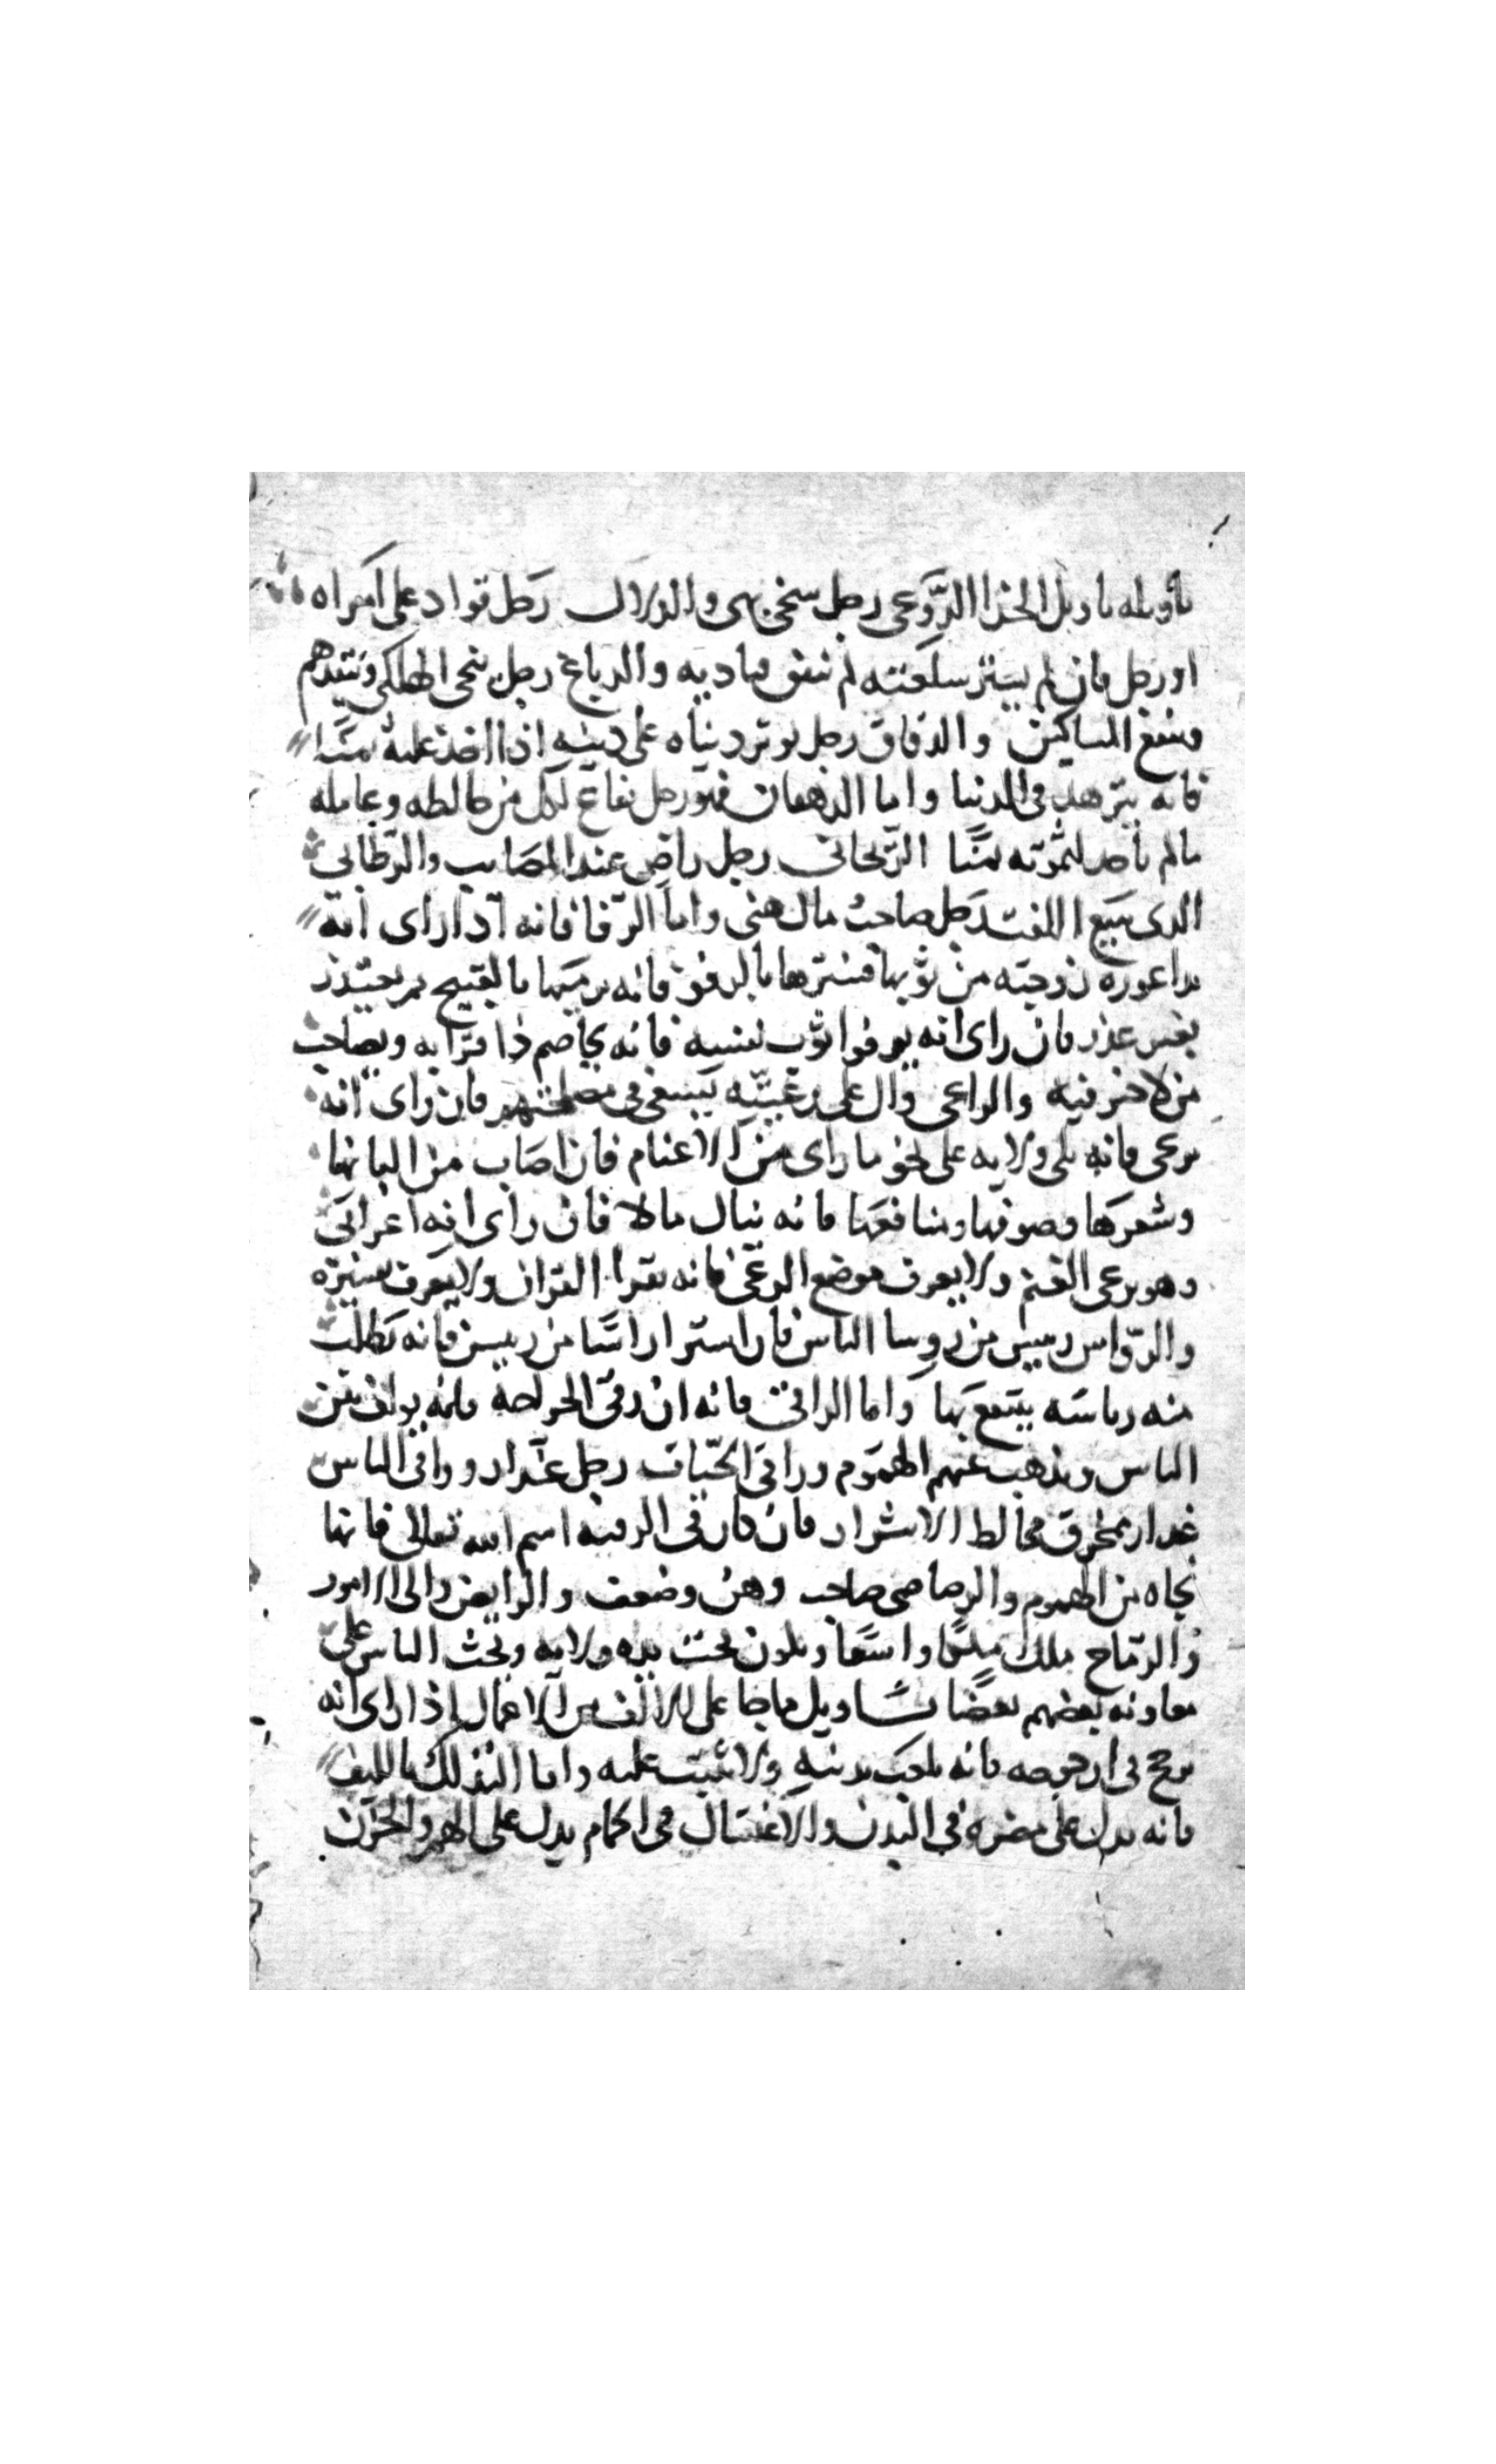 تأويله تأويل الخزاز الدوعى رجل سخى بهى والدلال رجل قواد على امراه
او رجل فان لم يستر سلعته لم تنفق مباديه والدباغ رجل ينجى الهلكى ويتقدهم
وينفع المساكين والدقاق رجل يوثر دنياه على دينه اذا اخذ عليه ثمنا
فانه يتزهد فى الدنيا واما الدهقان فهو رجل نفاع لكل من خالطه وعامله
مالم ياخذ لثمرته ثمنا الريحانى رجل راض عند المصايب والرطابى
الذى يبيع القت رجل صاحب مال هنى واما الرفا فانه اذا راى انه
بدا عورة زوجته من ثوبها فسترها بالرفو فانه يرميها بالقبيح ثم يعتذر
بغير عذر فان راى انه يرفوا ثوب نفسه فانه يخاصم ذا قرابه ويصاحب
من لا خير فيه والراعى وال على رعيته يسعى فى مصلحتهم فان راى انه
يرعى فانه يلى ولايه على نحو ما راى من الاغنام فان اصاب من البانها
وشعرها وصوفها ومنافعها فانه ينال مالا فان راى انه اعرابى
وهو يرعى الغنم ولا يعرف موضع الرعى فانه يقرا القران ولا يعرف تفسيره
والرواس رييس من روسا الناس فان استرا راسا من رييس فانه يطلب
منه رياسه ينتفع بها واما الراقى فانه ان رقى الجراحه فانه يولف بين
الناس ويذهب عنهم الهموم وراقى الحيات رجل غدار وراقى الناس
غدار ممخرق مخالط الاشرار فان كان فى الرقيه اسم الله تعالى فانها
نجاه من الهموم والرصاصى صاحب وهن وضعف والرايض والى الامور
والرماح يملك ملكا واسعا ويكون تحت يده ولايه وتحث الناس على
معاونه بعضهم بعضا تاويل ما جا على الالف من الاعمال اذا راى انه
يرجح فى ارجوحه فانه يلعب بدينه ولا يثبت عليه واما التدلك بالليف
فانه يدل على مضره فى البدن والاغتسال فى الحمام يدل على الهم والحزن